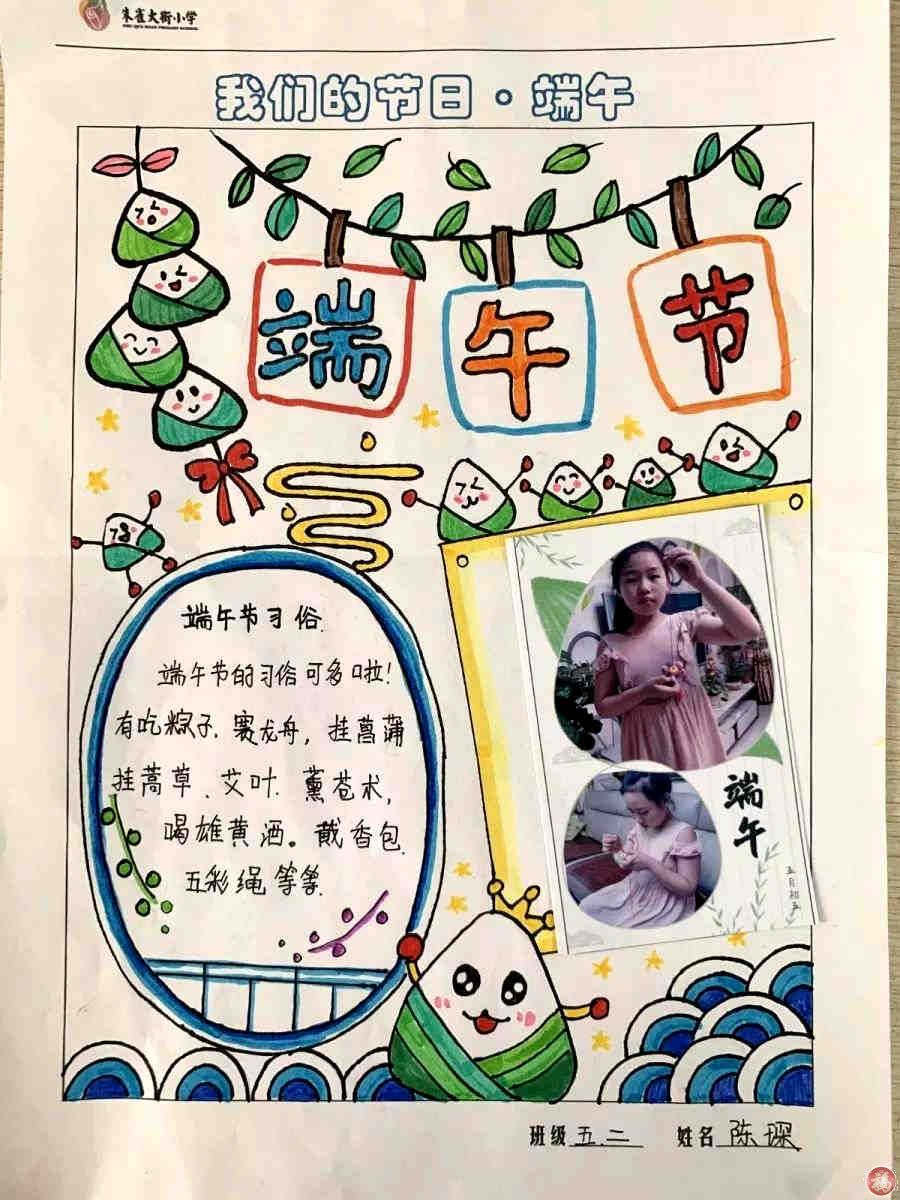 朱雀大街小学
我们的节日·端午
端午节
端午节习俗.
端午节的习俗可多啦!
有吃粽子.赛龙舟,挂菖蒲
挂蒿草、艾叶.薰苍术,
喝雄黄酒。戴香包.
五彩绳等等.
端午
五月初五
班级 五.二 姓名 陈琛
福